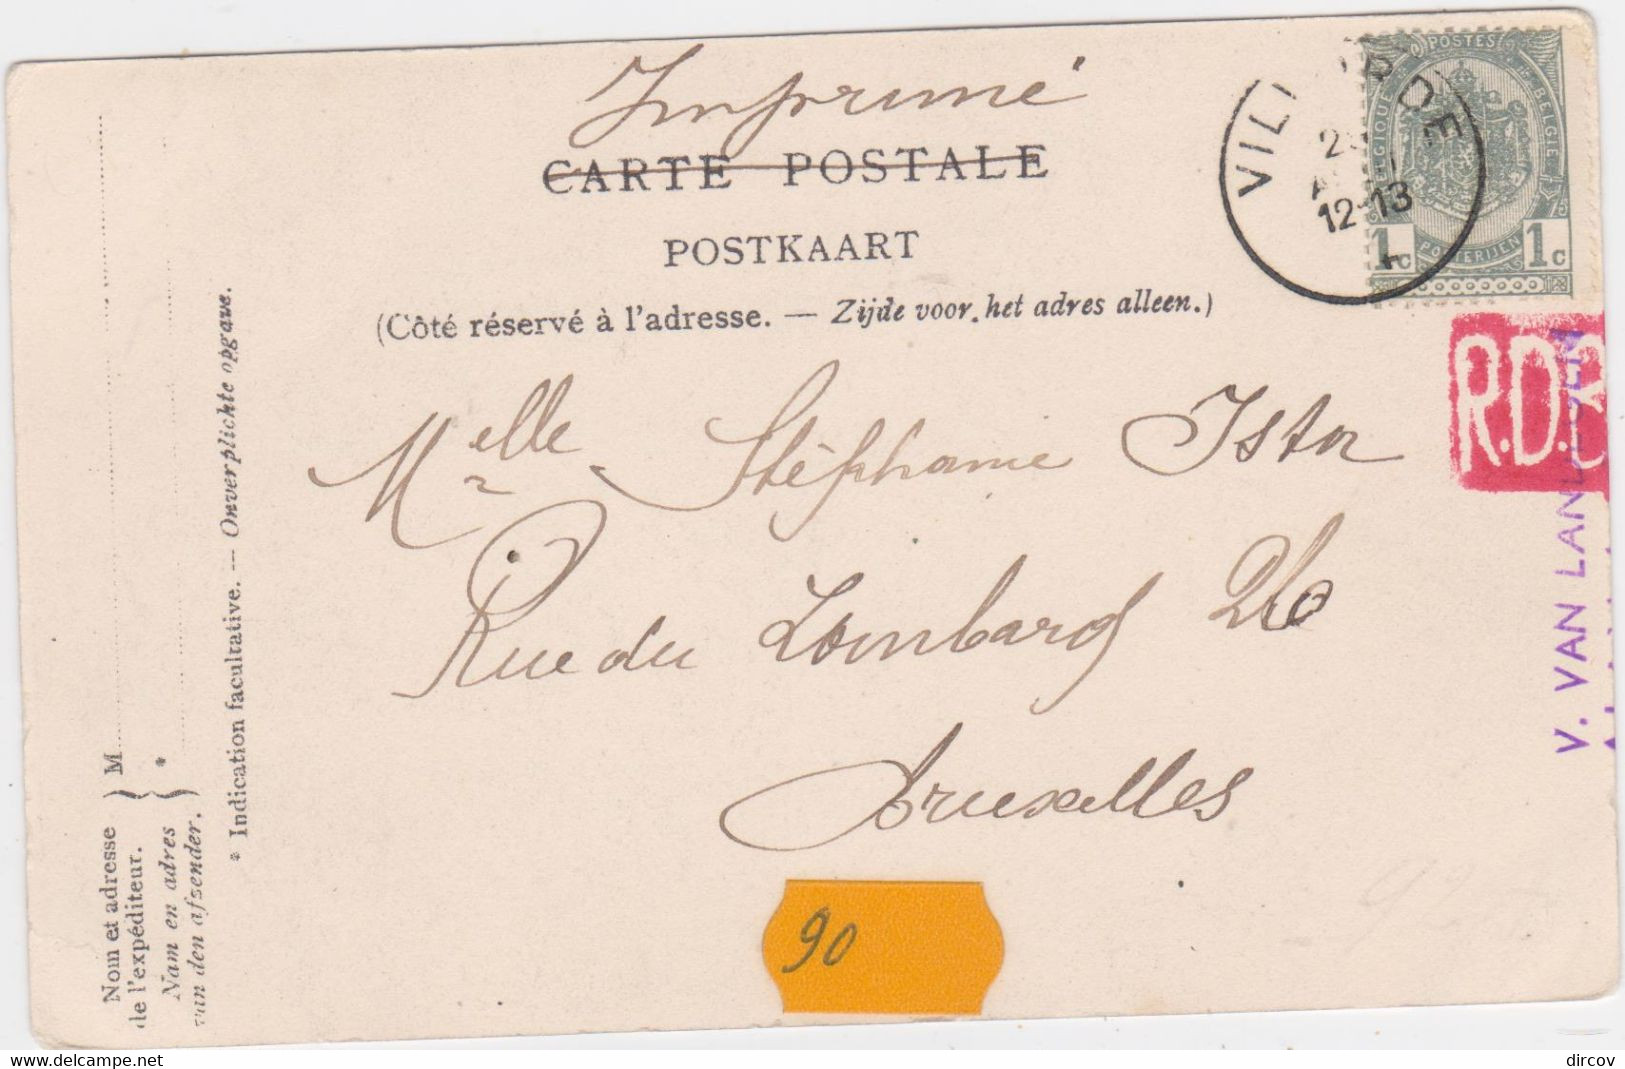 Imprimé
CARTE POSTALE
POSTKAART
(Côté réservé à l'adresse. — Zijde voor het adres alleen.)
POSTES
BELGIQUE
BELGIE
POSTERIJEN
1c 1c
VIL RDE
12-13
R.D.
V. VAN LAN
Melle Stéphanie Istor
Rue du Lombard 26
Bruxelles
90
Nom et adresse
de l'expéditeur.
Nam en adres
van den afsender.
M
*
* Indication facultative. — Onverplichte opgave.
www.delcampe.net
dircov